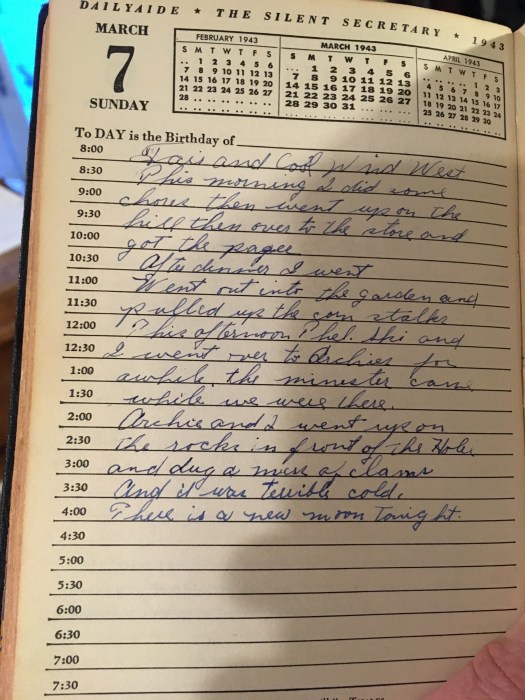 DAILYAIDE ★ THE SILENT SECRETARY ★ 1943
MARCH
7
SUNDAY
FEBRUARY 1943
S M T W T F S
.. 1 2 3 4 5 6
7 8 9 10 11 12 13
14 15 16 17 18 19 20
21 22 23 24 25 26 27
28 .. .. .. .. .. ..
MARCH 1943
S M T W T F S
.. 1 2 3 4 5 6
7 8 9 10 11 12 13
14 15 16 17 18 19 20
21 22 23 24 25 26 27
28 29 30 31 .. .. ..
APRIL 1943
S M T W T F S
.. .. .. .. 1 2 3
4 5 6 7 8 9 10
11 12 13 14 15 16 17
18 19 20 21 22 23 24
25 26 27 28 29 30 ..
To DAY is the Birthday of
8:00 Fair and Cool Wind West
8:30 This morning I did some
9:00 chores then went up on the
9:30 hill then over to the store and
10:00 got the paper
10:30 After dinner I went
11:00 Went out into the garden and
11:30 pulled up the corn stalks
12:00 This afternoon Phel. Shi and
12:30 I went over to Archies for
1:00 awhile, the minister came
1:30 while we were there.
2:00 Archie and I went up on
2:30 the rocks in front of the Hole
3:00 and dug a mess of clams
3:30 And it was terrible cold.
4:00 There is a new moon Tonight.
4:30
5:00
5:30
6:00
6:30
7:00
7:30